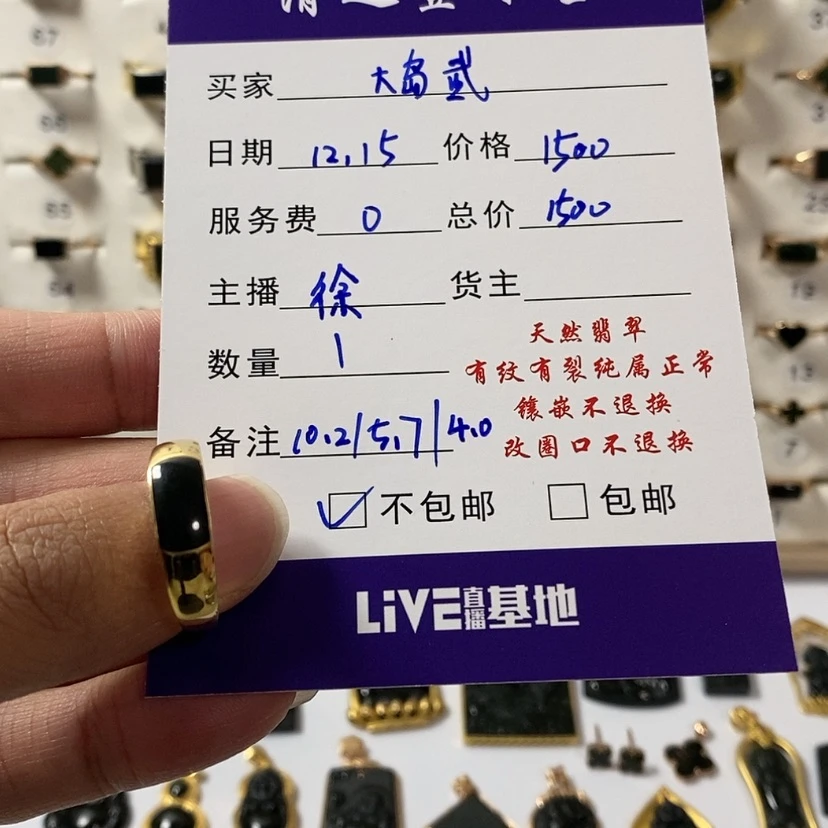 买家 大岛贰
日期 12.15 价格 1500
服务费 0 总价 1500
主播 徐 货主
数量 1
天然翡翠
有纹有裂纯属正常
镶嵌不退换
改圈口不退换
备注 10.2/5.7/4.0
不包邮 包邮
LiVE直播基地